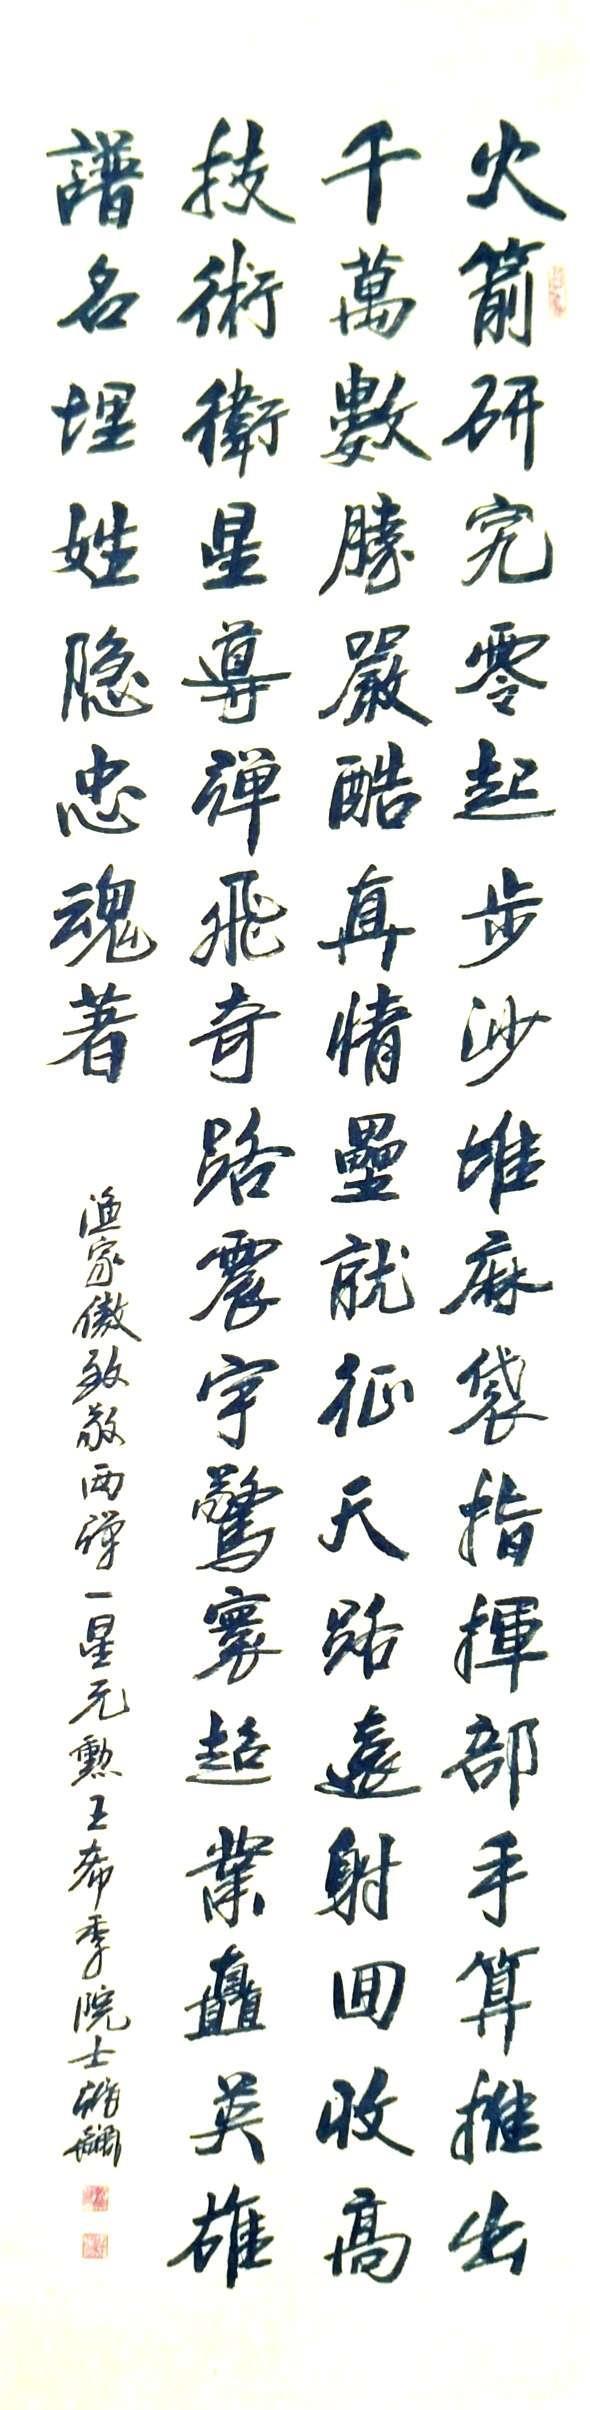 火箭研究零起步沙堆麻袋指揮部手算推出
千萬數勝嚴酷真情壘就征天路遠射回收高
技術衛星導彈飛奇路震宇驚寰超業矗英雄
譜名埋姓隐忠魂著
渔家傲致敬两弹一星元勳王希季院士